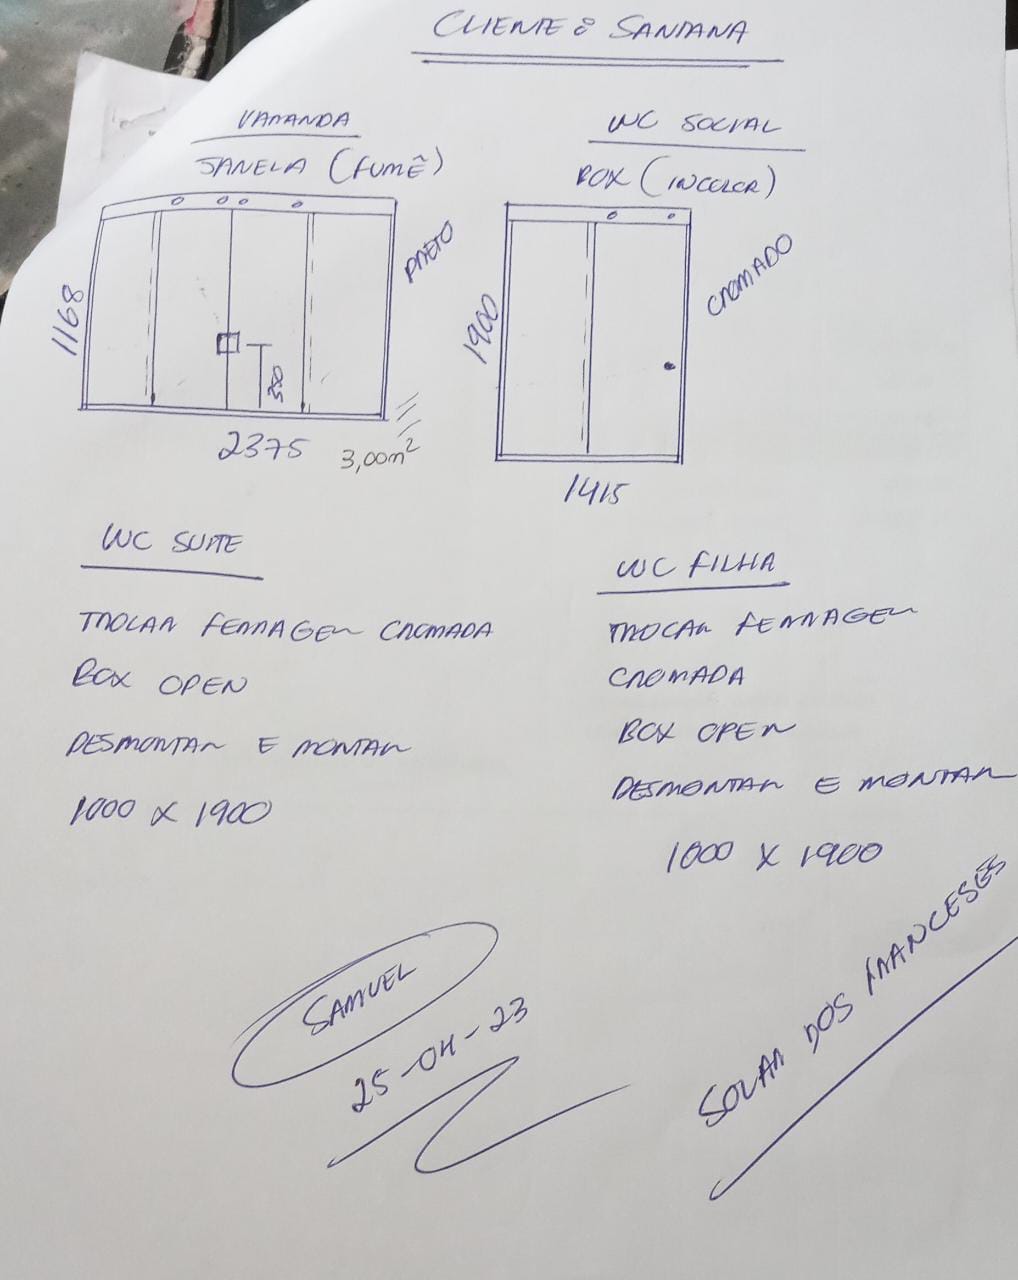 CLIENTE: SANTANA
VARANDA
JANELA (FUMÊ)
PRETO
1168
350
2375
3,00m²
WC SOCIAL
BOX (INCOLOR)
CROMADO
1900
1415
WC SUITE
TROCAR FERRAGEM CROMADA
BOX OPEN
DESMONTAR E MONTAR
1000 X 1900
WC FILHA
TROCAR FERRAGEM
CROMADA
BOX OPEN
DESMONTAR E MONTAR
1000 X 1900
SAMUEL
25-04-23
SOLAR DOS FRANCESES